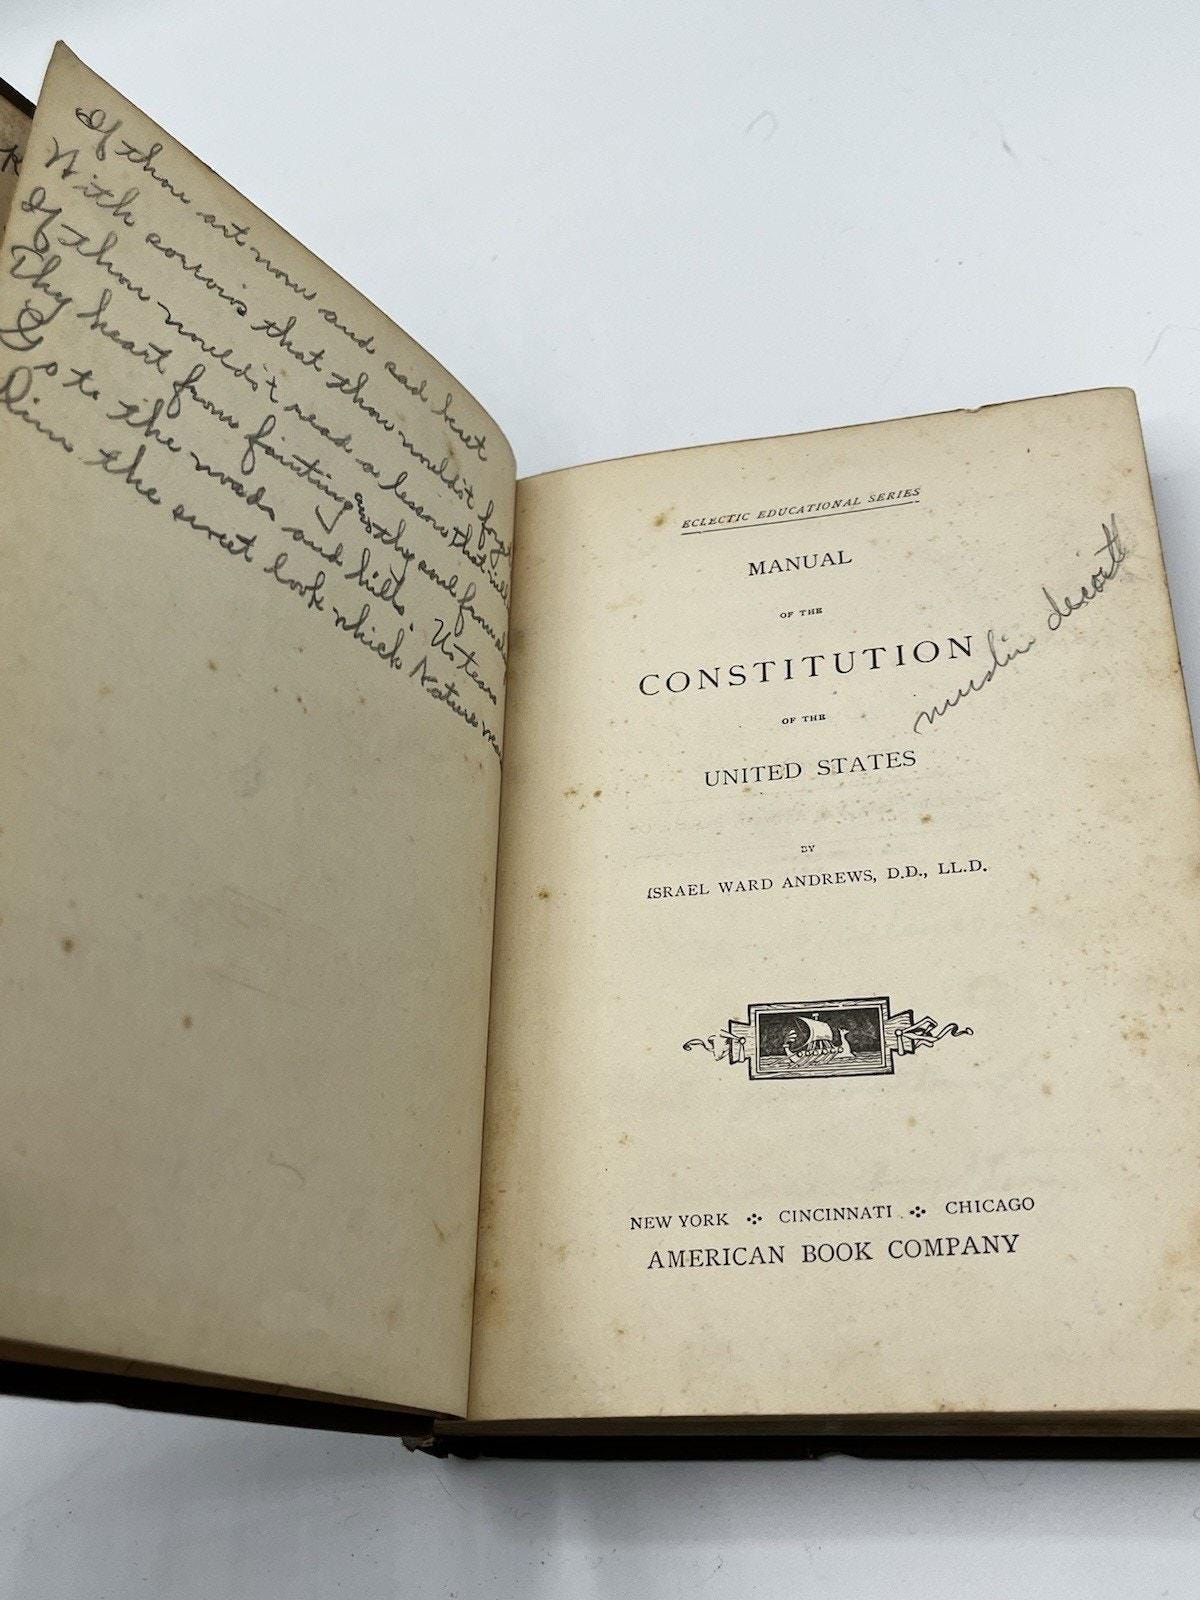 If thou art worn and sad beset
With sorrows that thou wouldst forget
If thou wouldst read a lesson that will
Thy heart from fainting and thy soul from
Go to the woods and hills. No tears
Dim the sweet look which Nature wears
ECLECTIC EDUCATIONAL SERIES
MANUAL
OF THE
CONSTITUTION
OF THE
UNITED STATES
muslin
BY
ISRAEL WARD ANDREWS, D.D., LL.D.
NEW YORK CINCINNATI CHICAGO
AMERICAN BOOK COMPANY